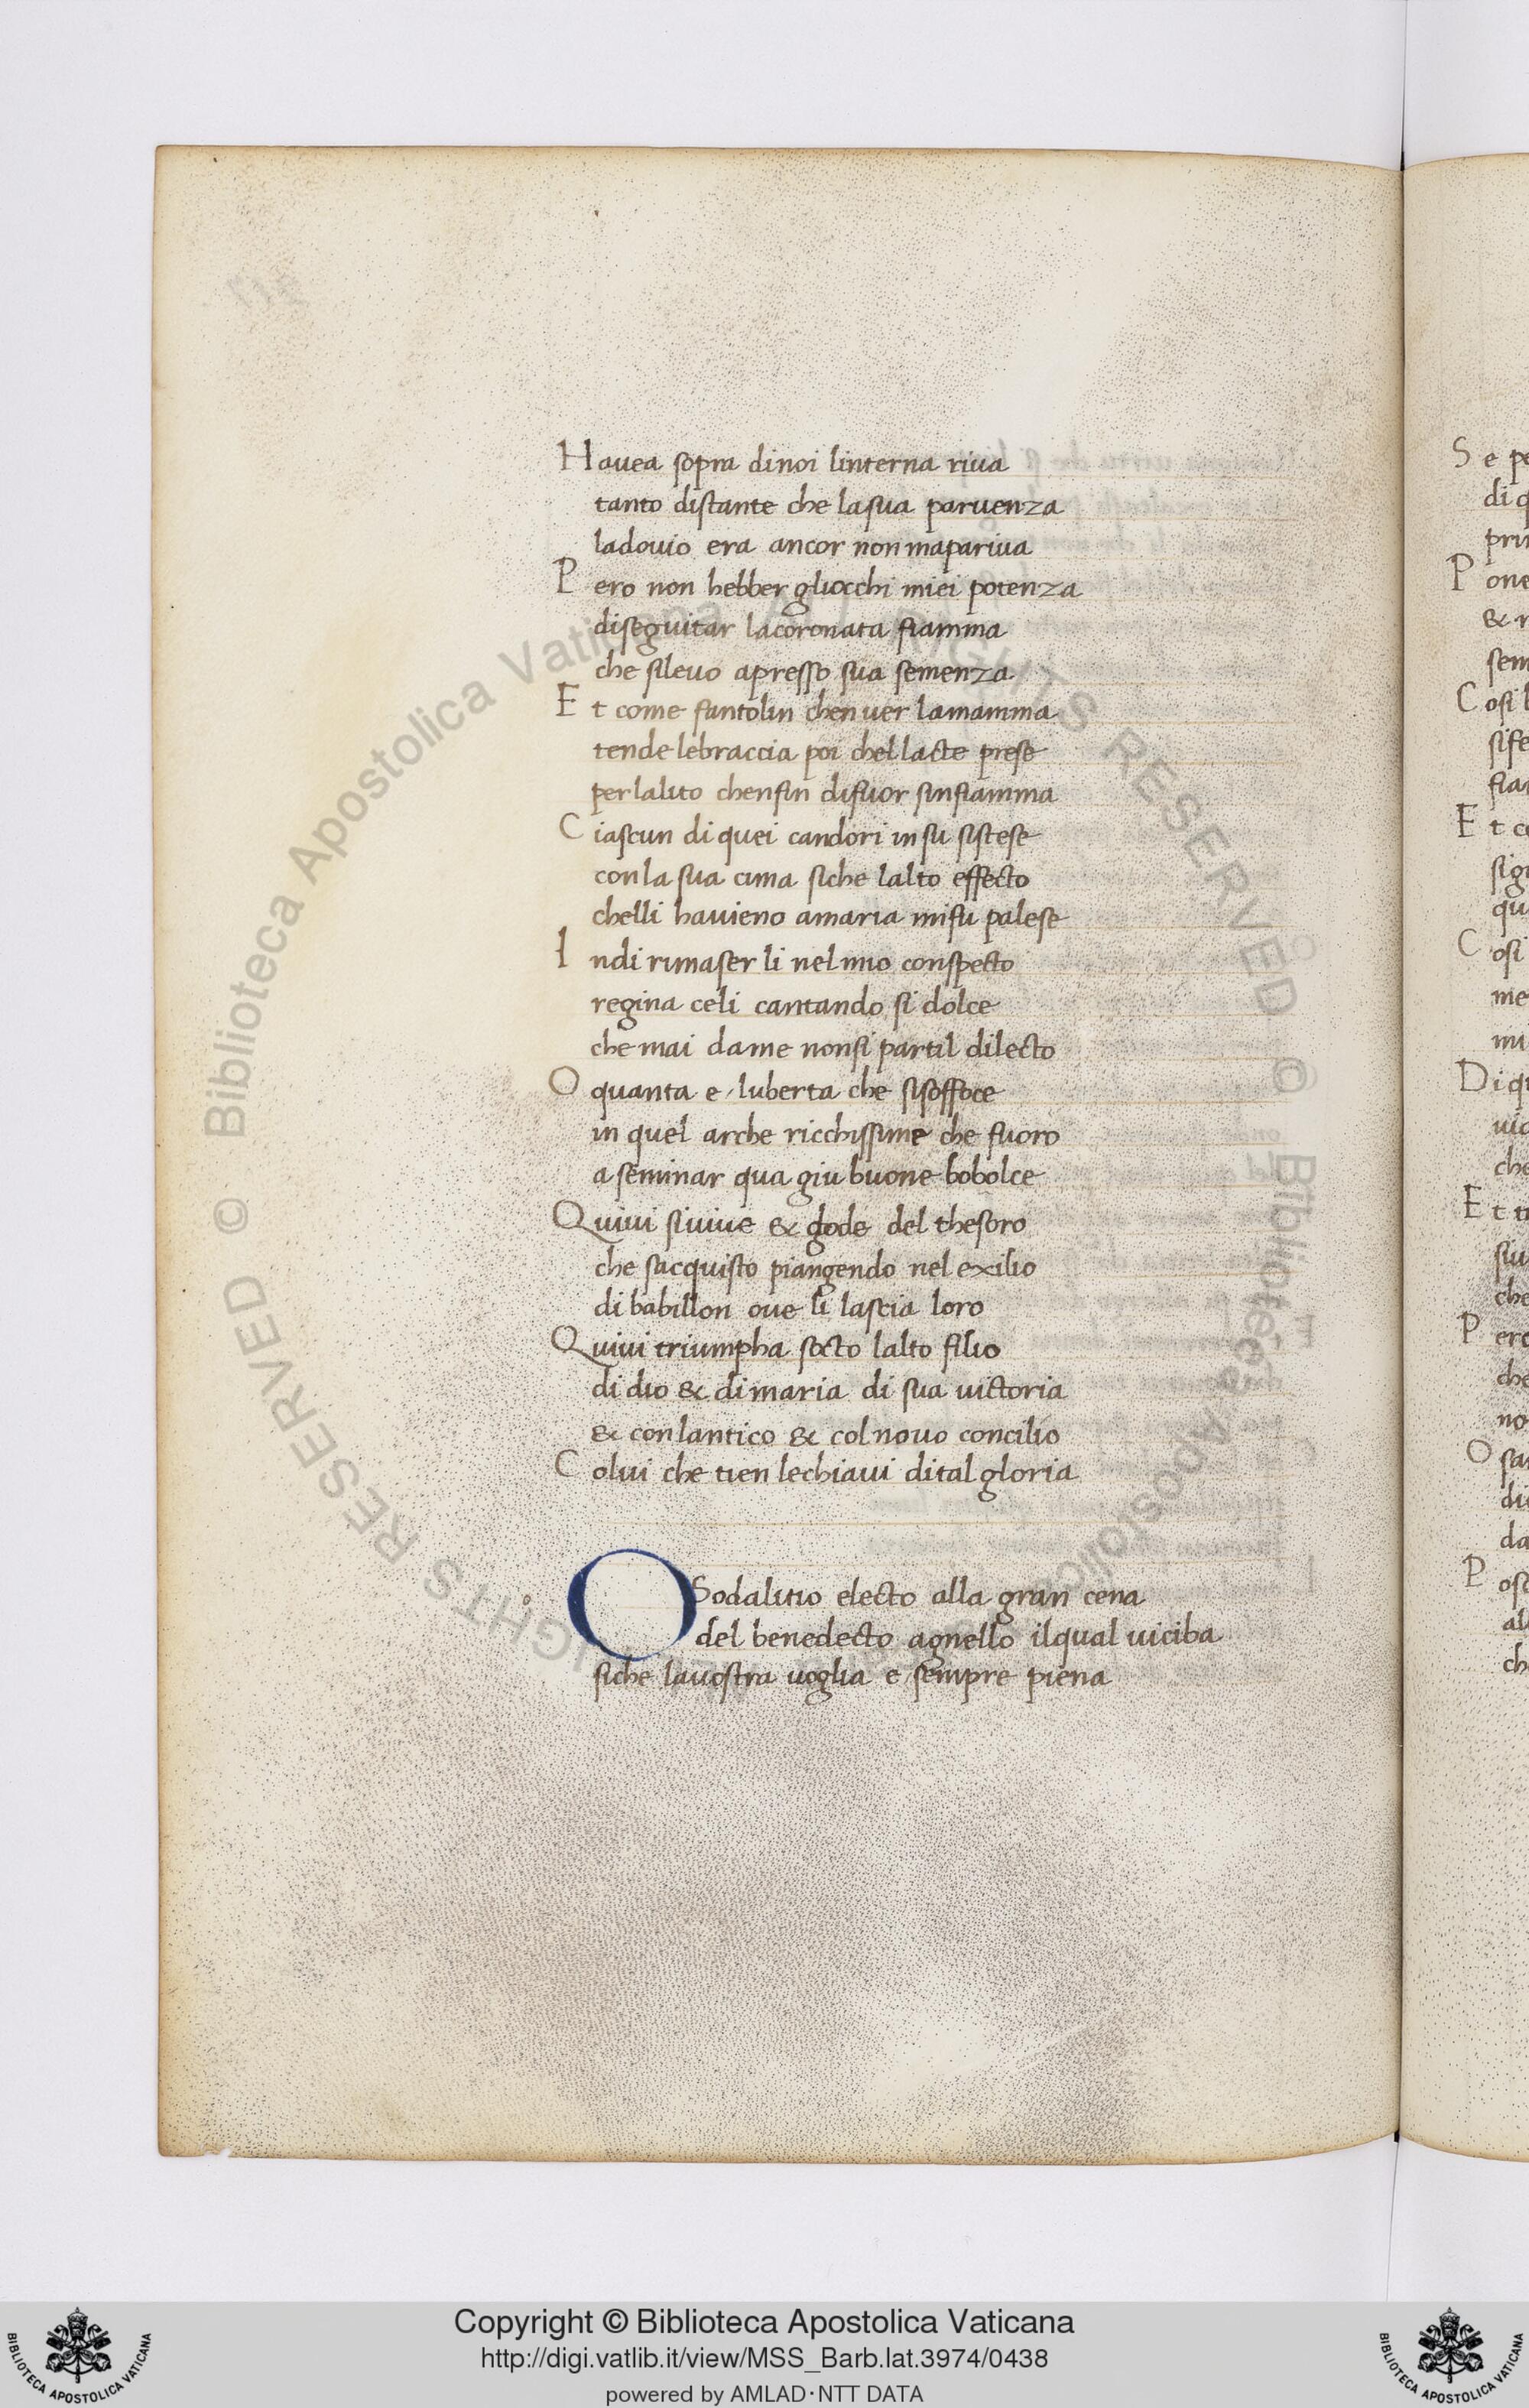 Havea sopra dinoi linterna riva
tanto distante che lasua parvenza
ladovio era ancor non mapariva
Pero non hebber gliocchi miei potenza
diseguitar lacoronata fiamma
che silevo apresso sua semenza
Et come fantolin chenver lamamma
tende lebraccia poi chel lacte prese
per lalito chenfin difuor sinfiamma
Ciascun di quei candori in su sistese
con la sua cima siche lalto effecto
chelli havieno amaria mifu palese
Indi rimaser li nel mio conspecto
regina celi cantando si dolce
che mai dame nonsi partil dilecto
O quanta e luberta che sisoffoce
in quel arche ricchissime che fuoro
a seminar qua giu buone bobolce
Quivi sivive & gode del thesoro
che sacquisto piangendo nel exilio
di babillon ove li lascia loro
Quivi triumpha socto lalto filio
di dio & di maria di sua victoria
& con lantico & col novo concilio
Colui che tien lechiavi dital gloria
o
O Sodalitio electo alla gran cena
del benedecto agnello ilqual viciba
siche lavostra voglia e sempre piena
Se pe
di q
pri
Pone
& r
sem
Cosi l
sife
fia
Et co
sig
qu
Cosi
me
mi
Di qu
vic
che
Et ti
siv
che
Pero
che
no
O sa
di
da
Posc
al
ch
© Biblioteca Apostolica Vaticana ALL RIGHTS RESERVED © Biblioteca Apostolica Vaticana ALL RIGHTS RESERVED
Copyright © Biblioteca Apostolica Vaticana
http://digi.vatlib.it/view/MSS_Barb.lat.3974/0438
powered by AMLAD·NTT DATA
BIBLIOTECA APOSTOLICA VATICANA
BIBLIOTECA APOSTOLICA VATICANA